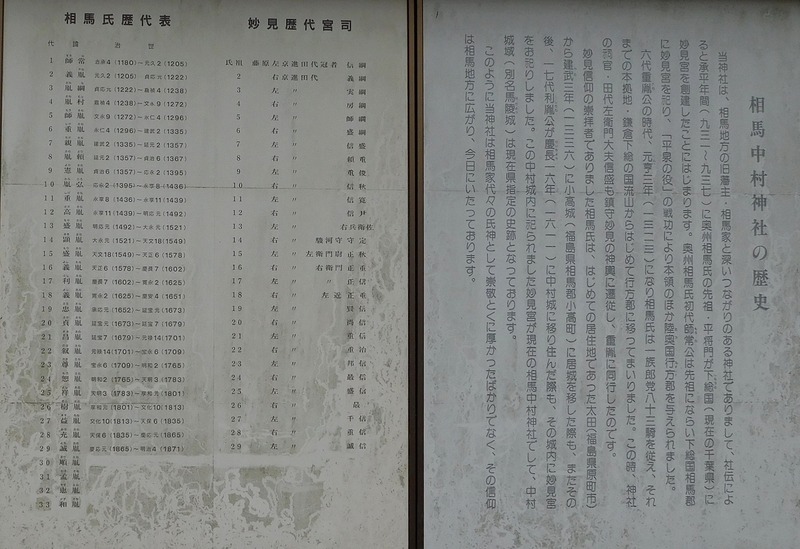 相馬氏歴代表
代 國 治世
1 師常 治承4 (1180)～元久2 (1205)
2 義胤 元久2 (1205) 貞応元 (1222)
3 胤綱 貞応元 (1222)～嘉禎4 (1238)
4 胤村 嘉禎4 (1238)～文永9 (1272)
5 師胤 文永9 (1272)～永仁4 (1296)
6 重胤 永仁4 (1296)～建武2 (1335)
7 親胤 建武2 (1335)～正平13 (1358)
8 胤頼 (1358)～ (1367)
9 憲胤 (1367)～応永2 (1395)
10 胤弘 応永2 (1395)～永享8 (1436)
11 重胤 永享8 (1436)～永享11 (1439)
12 高胤 永享11 (1439)～明応元 (1492)
13 盛胤 明応元 (1492)～大永元 (1521)
14 顕胤 大永元 (1521)～天文18 (1549)
15 盛胤 天文18 (1549)～天正6 (1578)
16 義胤 天正6 (1578)～慶長7 (1602)
17 利胤 慶長7 (1602)～寛永2 (1625)
18 義胤 寛永2 (1625)～慶安4 (1651)
19 忠胤 承応元 (1652)～延宝元 (1673)
20 貞胤 延宝元 (1673)～延宝7 (1679)
21 昌胤 延宝7 (1679)～元禄14 (1701)
22 叙胤 元禄14 (1701)～宝永6 (1709)
23 尊胤 宝永6 (1709)～明和2 (1765)
24 恕胤 明和2 (1765)～天明3 (1783)
25 祥胤 天明3 (1783)～享和元 (1801)
26 樹胤 享和元 (1801)～文化10 (1813)
27 益胤 文化10 (1813)～天保6 (1835)
28 充胤 天保6 (1835)～慶応元 (1865)
29 誠胤 慶応元 (1865)～明治4 (1871)
30 順胤
31 孟胤
32 恵胤
33 和胤
妙見歴代宮司
氏祖 藤原左京進田代冠者 信綱
2 右京進田代 義綱
3 左京 〃 実綱
4 右京 〃 房綱
5 左京 〃 師綱
6 右京 〃 盛綱
7 左京 〃 信盛
8 右京 〃 頼重
9 左京 〃 重俊
10 右京 〃 信秋
11 左京 〃 信寛
12 右京 〃 信尹
13 左京 〃 右兵衛佐
14 右京 〃 駿河守 守定
15 左京 〃 左衛門尉 正秋
16 右京 〃 右衛門 正重
17 左京 〃 正信
18 右京 〃 左近 正重
19 左京 〃 賢信
20 右京 〃 尚信
21 左京 〃 重信
22 右京 〃 重治
23 左京 〃 邦信
24 右京 〃 最信
25 左京 〃 盛信
26 右京 〃 最
27 左京 〃 千信
28 右京 〃 重信
29 左京 〃 誠信
相馬中村神社の歴史
当神社は、相馬地方の旧藩主・相馬家と深いつながりのある神社でありまして、社伝によ
ると承平年間(九三一～九三七)に奥州相馬氏の先祖・平将門が下総国(現在の千葉県)に
妙見宮を創建したことにはじまります。奥州相馬氏初代師常公は先祖にならい下総国相馬郡
に妙見宮を祀り、「平泉の役」の戦功により本領のほか陸奥国行方郡を与えられました。
六代重胤公の時代、元亨三年(一三二三)になり相馬氏は一族郎党八十三騎を従え、それ
までの本拠地・鎌倉下総の国流山からはじめて行方郡に移ってまいりました。この時、神社
の祠官・田代左衛門大夫信盛も鎮守妙見の神輿に遷従し、重胤に同行したのです。
妙見信仰の崇拝者でありました相馬氏は、はじめての居住地であった太田(福島県原町市)
から建武三年(一三三六)に小高城(福島県相馬郡小高町)に居城を移した際も、またその
後、一七代利胤公が慶長一六年(一六一一)に中村城に移り住んだ際も、その城内に妙見宮
をお祀りしました。この中村城内に祀られました妙見宮が現在の相馬中村神社でして、中村
城域(別名馬陵城)は現在県指定の史跡となっております。
このように当神社は相馬家代々の氏神として崇敬とくに厚かったばかりでなく、その信仰
は相馬地方に広がり、今日にいたっております。